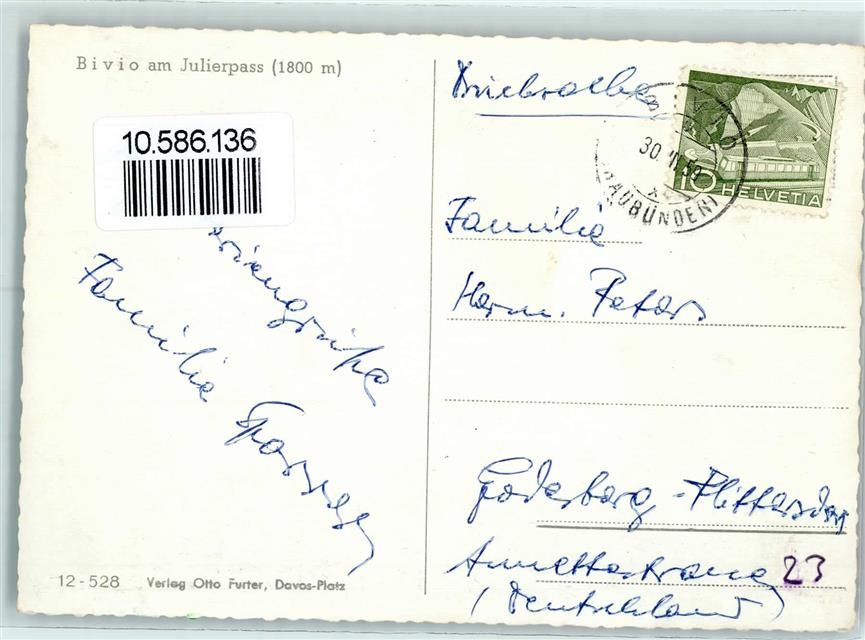 Bivio am Julierpass (1800 m)
10.586.136
Familie
12-528 Verlag Otto Furter, Davos-Platz
Drucksache
BIVIO
30.
(GRAUBÜNDEN)
10 HELVETIA
Familie
Herm. Peters
Godesberg-Plittersdorf
Annettestrasse 23
(Deutschland)